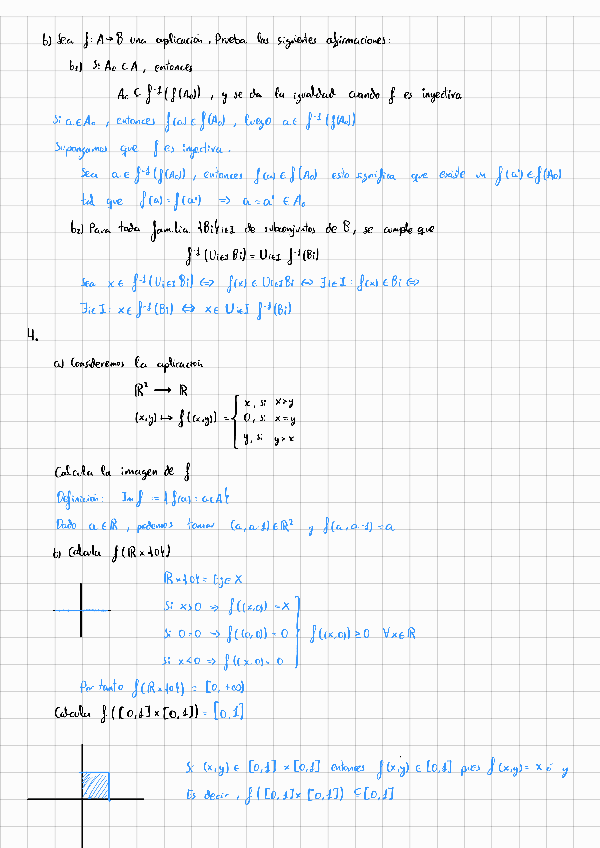 b) Sea f: A → B una aplicación. Prueba las siguientes afirmaciones:
b₁) Si A₀ ⊂ A, entonces
A₀ ⊂ f⁻¹(f(A₀)), y se da la igualdad cuando f es inyectiva
Si a ∈ A₀, entonces f(a) ∈ f(A₀), luego a ∈ f⁻¹(f(A₀))
Supongamos que f es inyectiva.
Sea a ∈ f⁻¹(f(A₀)), entonces f(a) ∈ f(A₀) esto significa que existe un f(a') ∈ f(A₀)
tal que f(a) = f(a') ⇒ a = a' ∈ A₀
b₂) Para toda familia {Bi}i∈I de subconjuntos de B, se cumple que
f⁻¹(Ui∈I Bi) = Ui∈I f⁻¹(Bi)
Sea x ∈ f⁻¹(Ui∈I Bi) ⇔ f(x) ∈ Ui∈I Bi ⇔ ∃i∈I : f(x) ∈ Bi ⇔
∃i∈I : x ∈ f⁻¹(Bi) ⇔ x ∈ Ui∈I f⁻¹(Bi)
4.
a) Consideremos la aplicación
ℝ² → ℝ
(x,y) ↦ f((x,y)) = { x, si x>y
0, si x=y
y, si y>x
Calcula la imagen de f
Definición: Im f := {f(a) : a ∈ A}
Dado a ∈ ℝ, podemos tomar (a, a-1) ∈ ℝ² y f(a, a-1) = a
b) Calcula f(ℝ×{0})
ℝ×{0} = Eje X
Si x>0 ⇒ f((x,0)) = x
Si 0=0 ⇒ f((0,0)) = 0 } f((x,0)) ≥ 0 ∀x∈ℝ
Si x<0 ⇒ f((x,0)) = 0
Por tanto f(ℝ×{0}) = [0, +∞)
Calcula f([0,1]×[0,1]) = [0,1]
Si (x,y) ∈ [0,1] × [0,1] entonces f(x,y) ∈ [0,1] pues f(x,y) = x ó y
Es decir, f([0,1]×[0,1]) ⊆ [0,1]